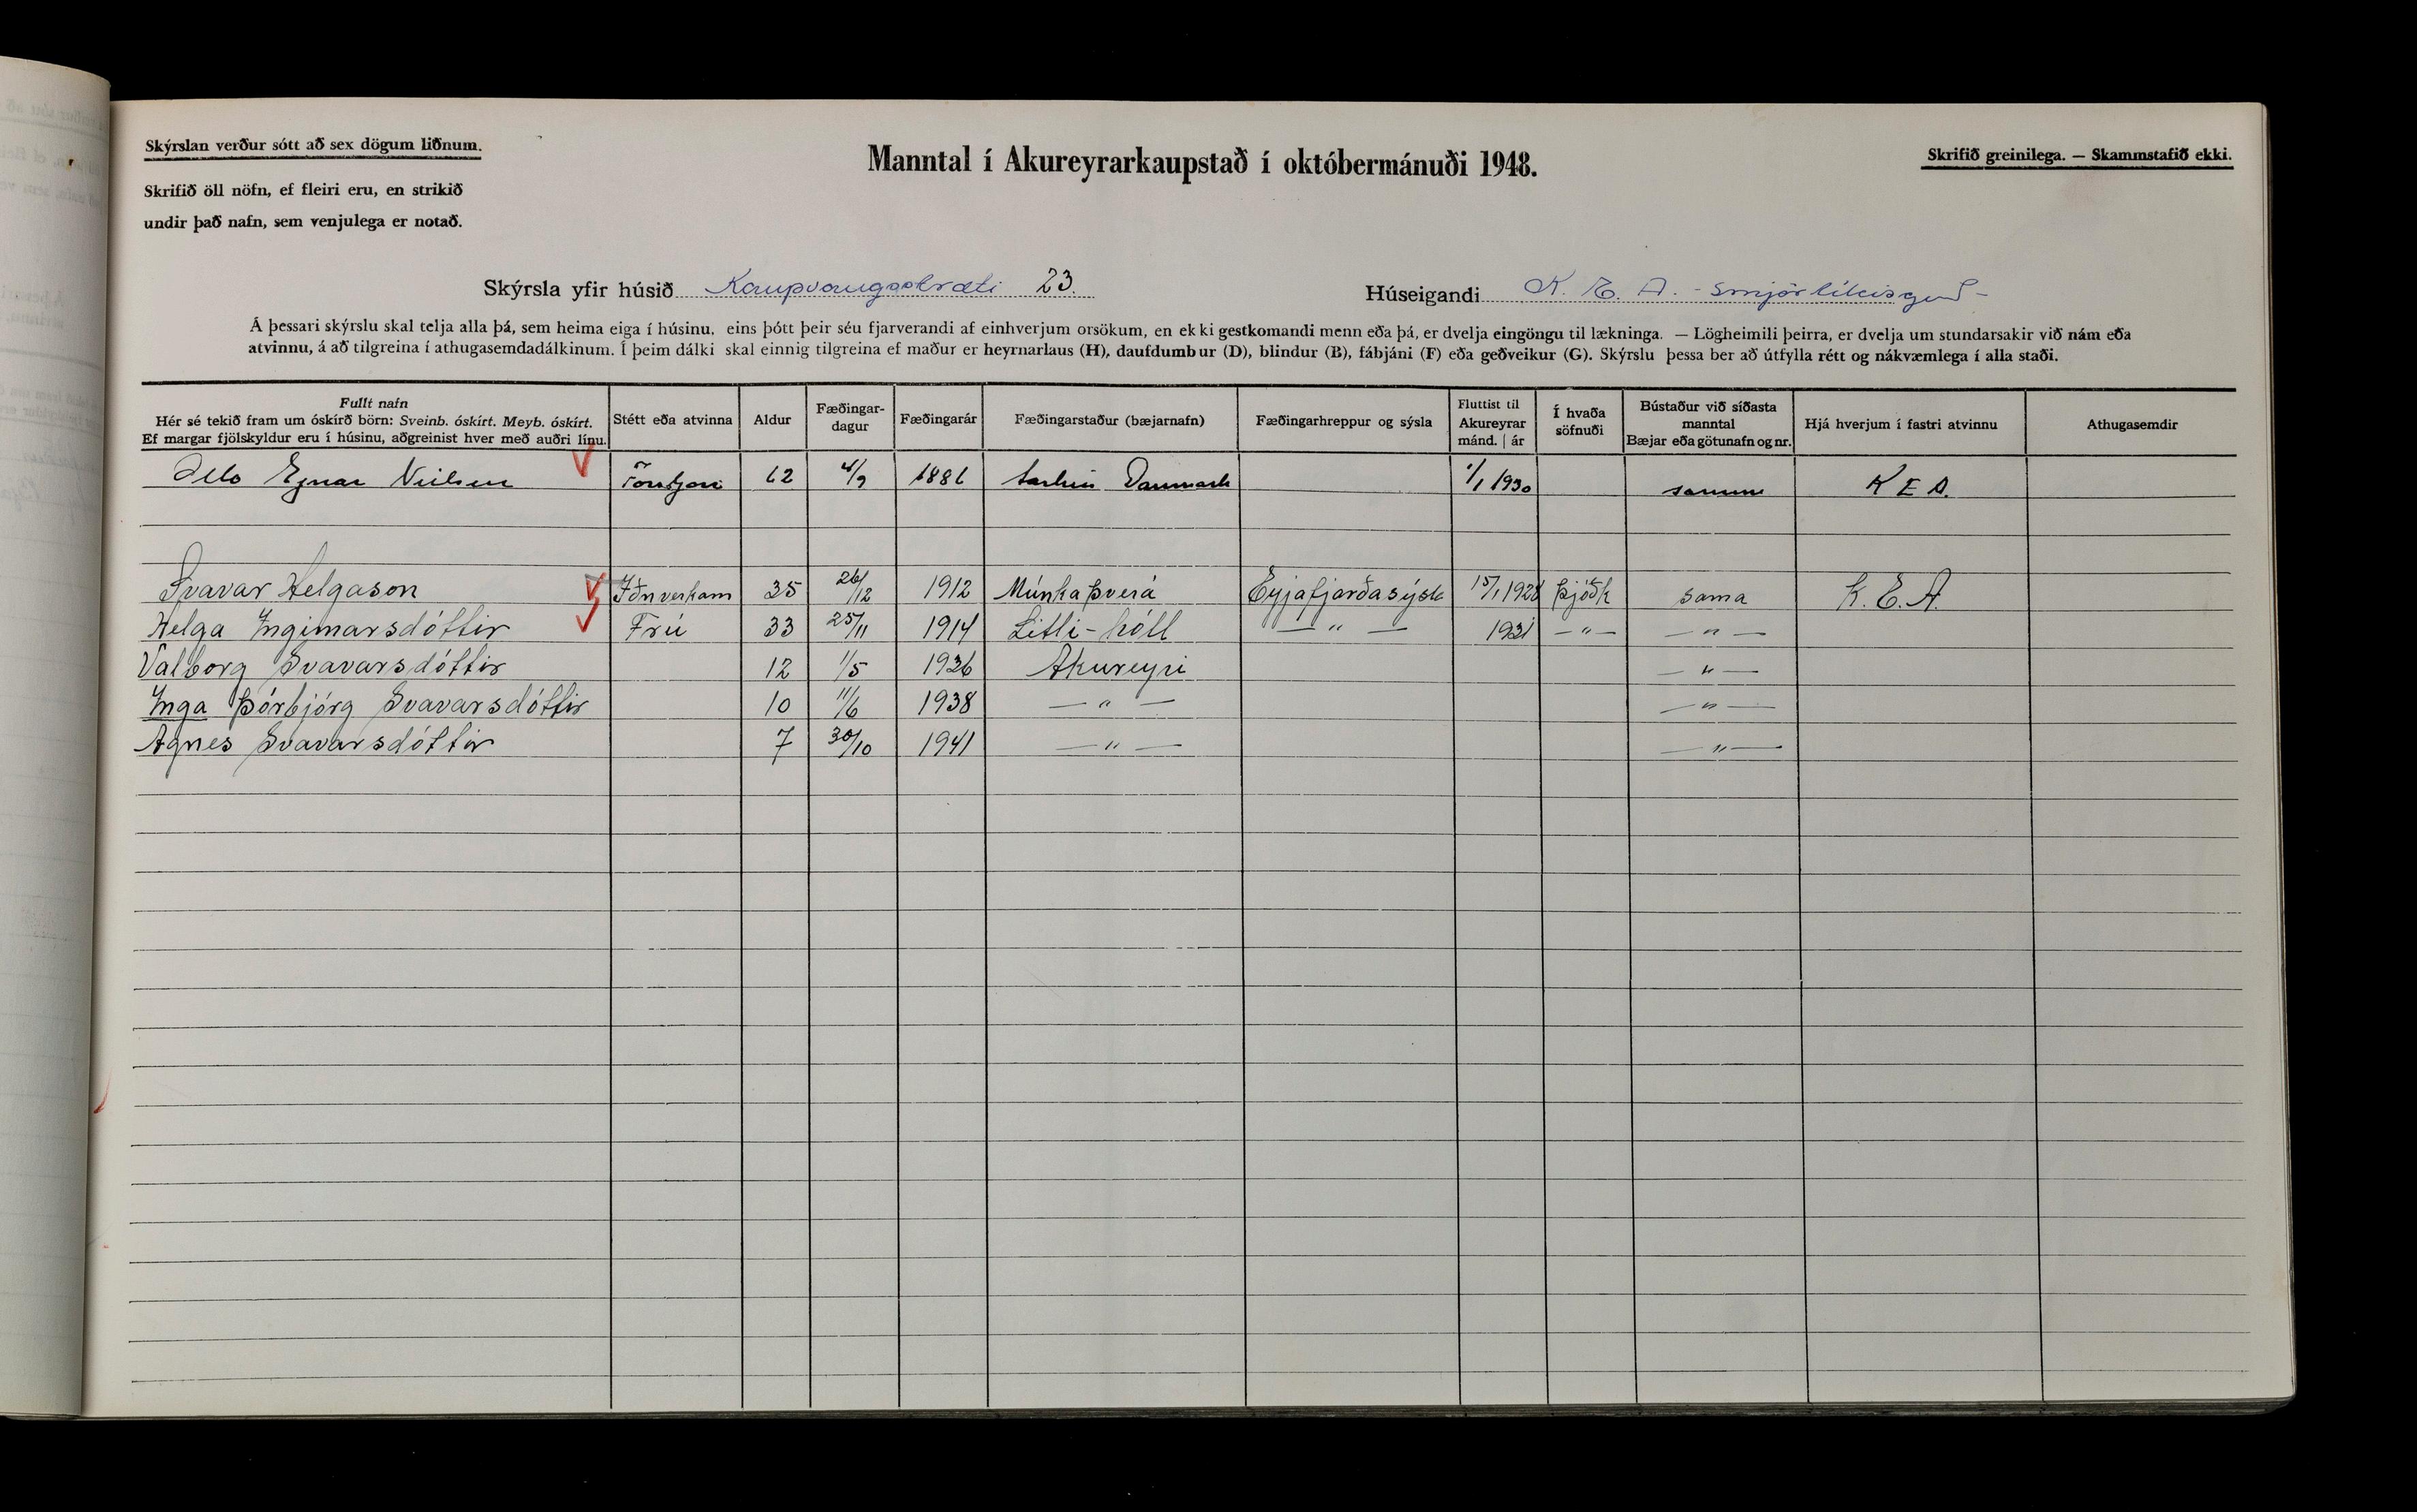 Skýrslan verður sótt að sex dögum liðnum.
Skrifið öll nöfn, ef fleiri eru, en strikið
undir það nafn, sem venjulega er notað.
Manntal í Akureyrarkaupstað í októbermánuði 1948.
Skrifið greinilega. — Skammstafið ekki.
Skýrsla yfir húsið Kaupvangsstræti 23.
Húseigandi K. E. A. - smjörlíkisgerð -
Á þessari skýrslu skal telja alla þá, sem heima eiga í húsinu, eins þótt þeir séu fjarverandi af einhverjum orsökum, en ekki gestkomandi menn eða þá, er dvelja eingöngu til lækninga. — Lögheimili þeirra, er dvelja um stundarsakir við nám eða
atvinnu, á að tilgreina í athugasemdadálkinum. Í þeim dálki skal einnig tilgreina ef maður er heyrnarlaus (H), daufdumbur (D), blindur (B), fábjáni (F) eða geðveikur (G). Skýrslu þessa ber að útfylla rétt og nákvæmlega í alla staði.
Fullt nafn
Hér sé tekið fram um óskírð börn: Sveinb. óskírt. Meyb. óskírt.
Ef margar fjölskyldur eru í húsinu, aðgreinist hver með auðri línu.
Stétt eða atvinna
Aldur
Fæðingar-
dagur
Fæðingarár
Fæðingarstaður (bæjarnafn)
Fæðingarhreppur og sýsla
Fluttist til
Akureyrar
mánd. | ár
Í hvaða
söfnuði
Bústaður við síðasta
manntal
Bæjar eða götunafn og nr.
Hjá hverjum í fastri atvinnu
Athugasemdir
Ejnar Nielsen 62 1886 Danmark 1/1 1930 samme K E A.
Svavar Helgason Iðnverkam 35 26/12 1912 Múnkaþverá Eyjafjarðasýsla 15/1 1928 Þjóðk sama K. E. A.
Helga Ingimarsdóttir Frú 33 25/11 1914 Litli-hóll — " — 1931 — " — — " —
Valborg Svavarsdóttir 12 1/5 1936 Akureyri — " —
Inga Þórbjörg Svavarsdóttir 10 11/6 1938 — " — — " —
Agnes Svavarsdóttir 7 30/10 1941 — " — — " —